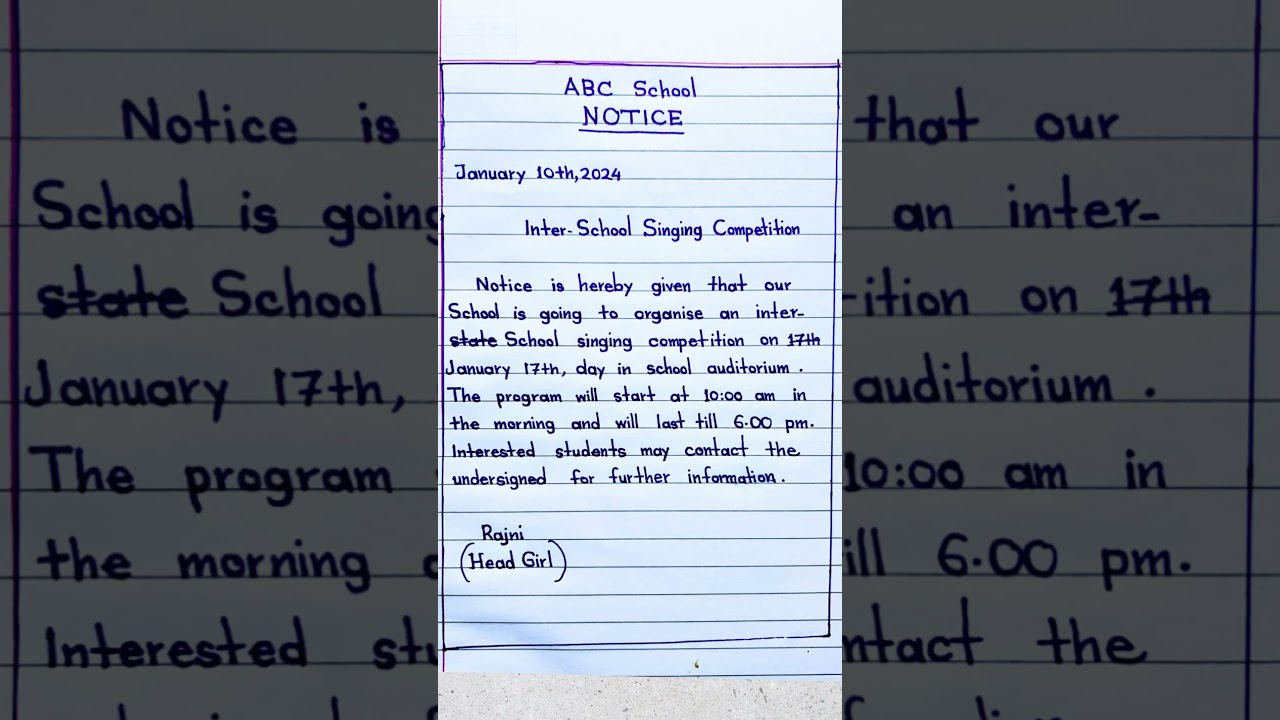 ABC School
NOTICE
January 10th, 2024
Inter-School Singing Competition
Notice is hereby given that our
School is going to organise an inter-
state School singing competition on 17th
January 17th, day in school auditorium.
The program will start at 10:00 am in
the morning and will last till 6.00 pm.
Interested students may contact the
undersigned for further information.
Rajni
(Head Girl)